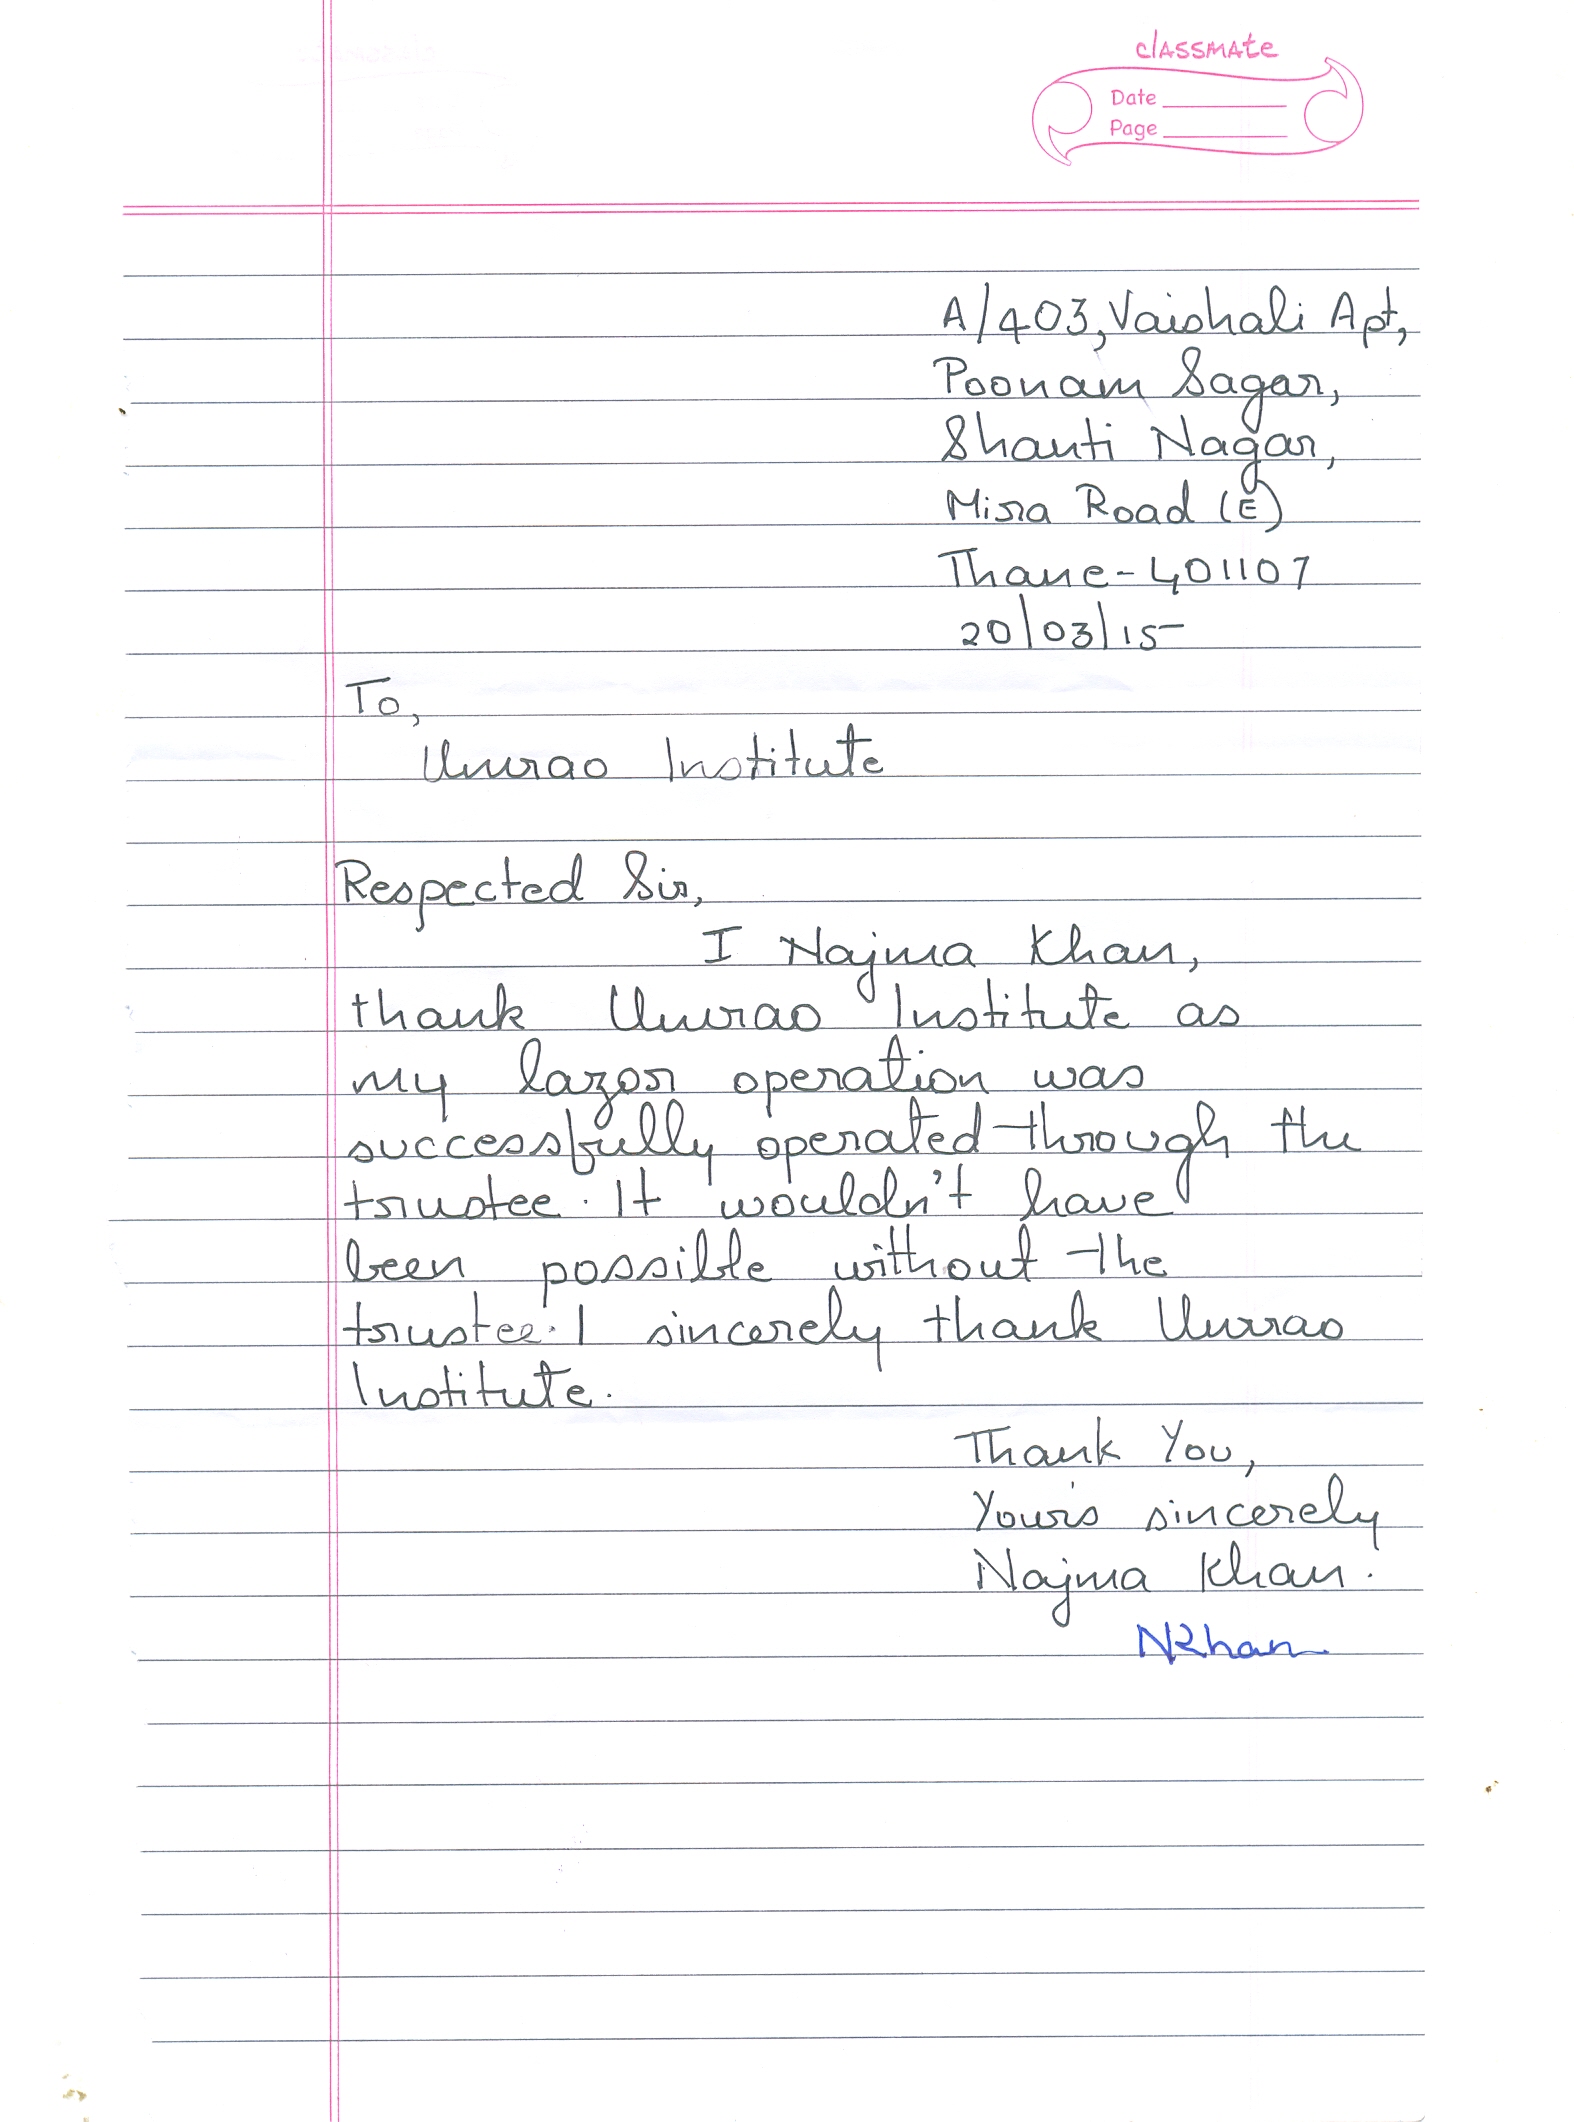 classmate
Date
Page
A/403, Vaishali Apt,
Poonam Sagar,
Shanti Nagar,
Mira Road (E)
Thane - 401107
20/03/15
To,
Umrao Institute
Respected Sir,
I Najma Khan,
thank Umrao Institute as
my lazor operation was
successfully operated through the
trustee. It wouldn't have
been possible without the
trustee. I sincerely thank Umrao
Institute.
Thank You,
Your's sincerely
Najma Khan.
NKhan